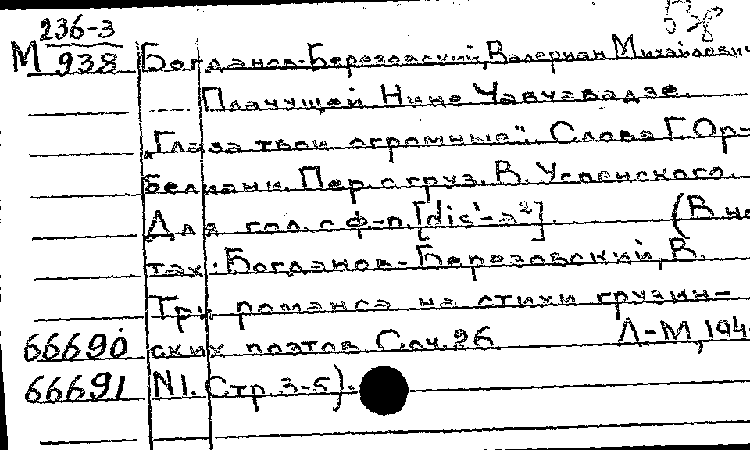 236-3
М 938 Богданов-Березовский, Валериан Михайлович
Плачущей Нине Чавчавадзе.
"Глаза твои огромные". Слова Г. Ор-
белиани. Пер. с груз. В. Успенского.
Для гол. с ф-п. [dis¹-a²]. (В но
тах: Богданов-Березовский, В.
Три романса на стихи грузин-
66690 ских поэтов. Соч. 26 Л-М, 194
66691 N1. Стр. 3-5).